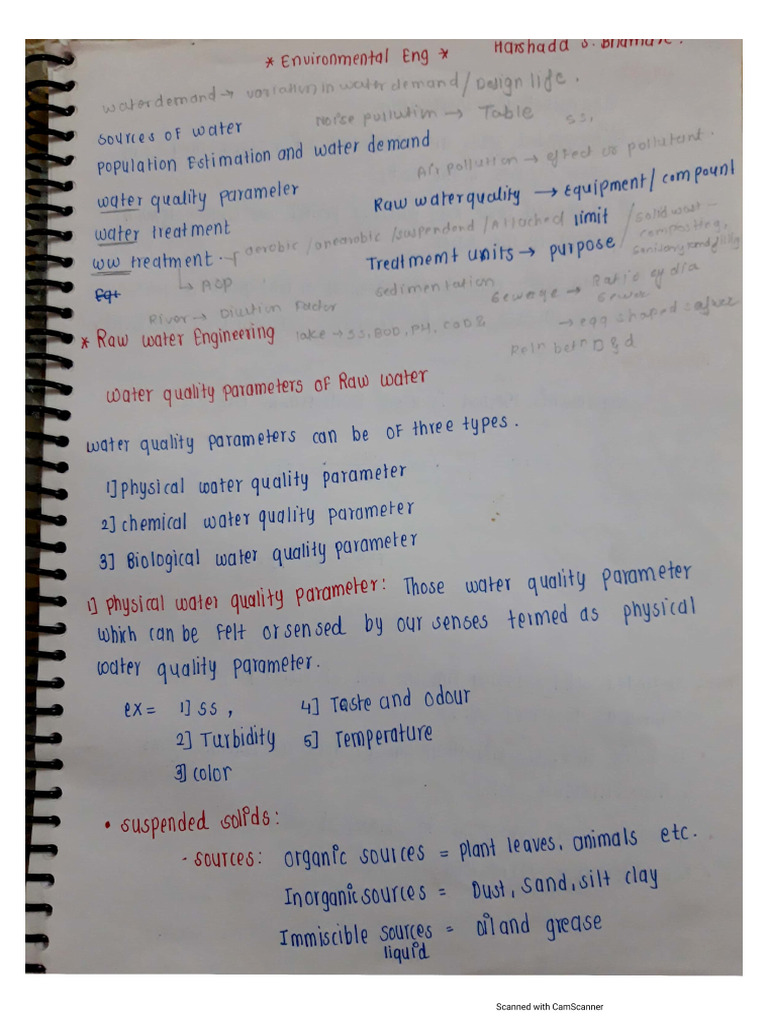 * Environmental Eng *
Harshada S.
water demand → variations in water demand / Design life.
Noise pollution → Table
SS,
sources of water
population Estimation and water demand
Air pollution → effect of pollutant.
water quality parameter
Raw water quality → Equipment / compount
water treatment
limit
ww treatment. aerobic / aneorobic / suspendend / Attached
Treatment units → purpose
/ solid wast - composting, 
→ ASP
sedimentation
Sewage → Ratio
Sewer
River → Dilution Factor
→ egg shaped =
* Raw water Engineering
lake → SS, BOD, PH, COD &
Reln betn D & d
water quality parameters of Raw water
water quality parameters can be of three types.
1] physical water quality parameter
2] chemical water quality parameter
3] Biological water quality parameter
1] physical water quality parameter: Those water quality parameter
which can be felt or sensed by our senses termed as physical
water quality parameter.
ex = 1] SS , 4] Taste and odour
2] Turbidity 5] Temperature
3] color
• suspended solids:
- sources: organic sources = plant leaves, animals etc.
Inorganic sources = Dust, sand, silt clay
Immiscible sources = oil and grease
liquid
Scanned with CamScanner